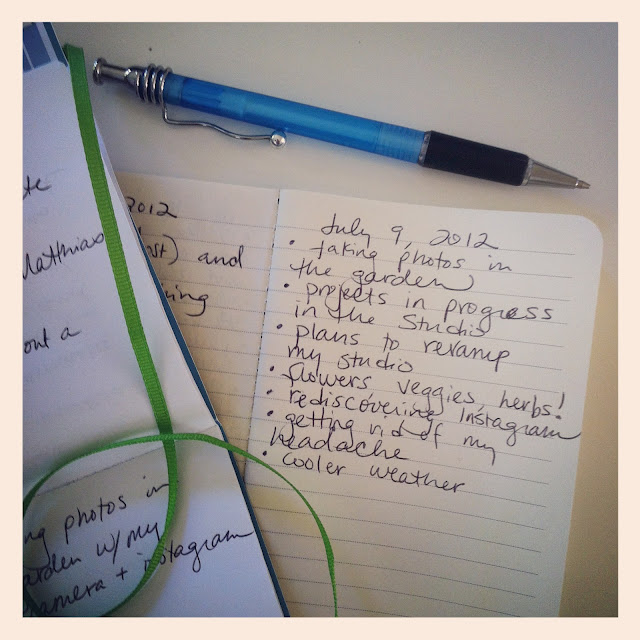 te
Matthias
out a
ng photos in
arden w/ my
camera + instagram
2012
ost) and
ing
July 9, 2012
• taking photos in
the garden
• projects in progress
in the studio
• plans to revamp
my studio
• flowers, veggies, herbs!
• rediscovering Instagram
• getting rid of my
headache
• cooler weather